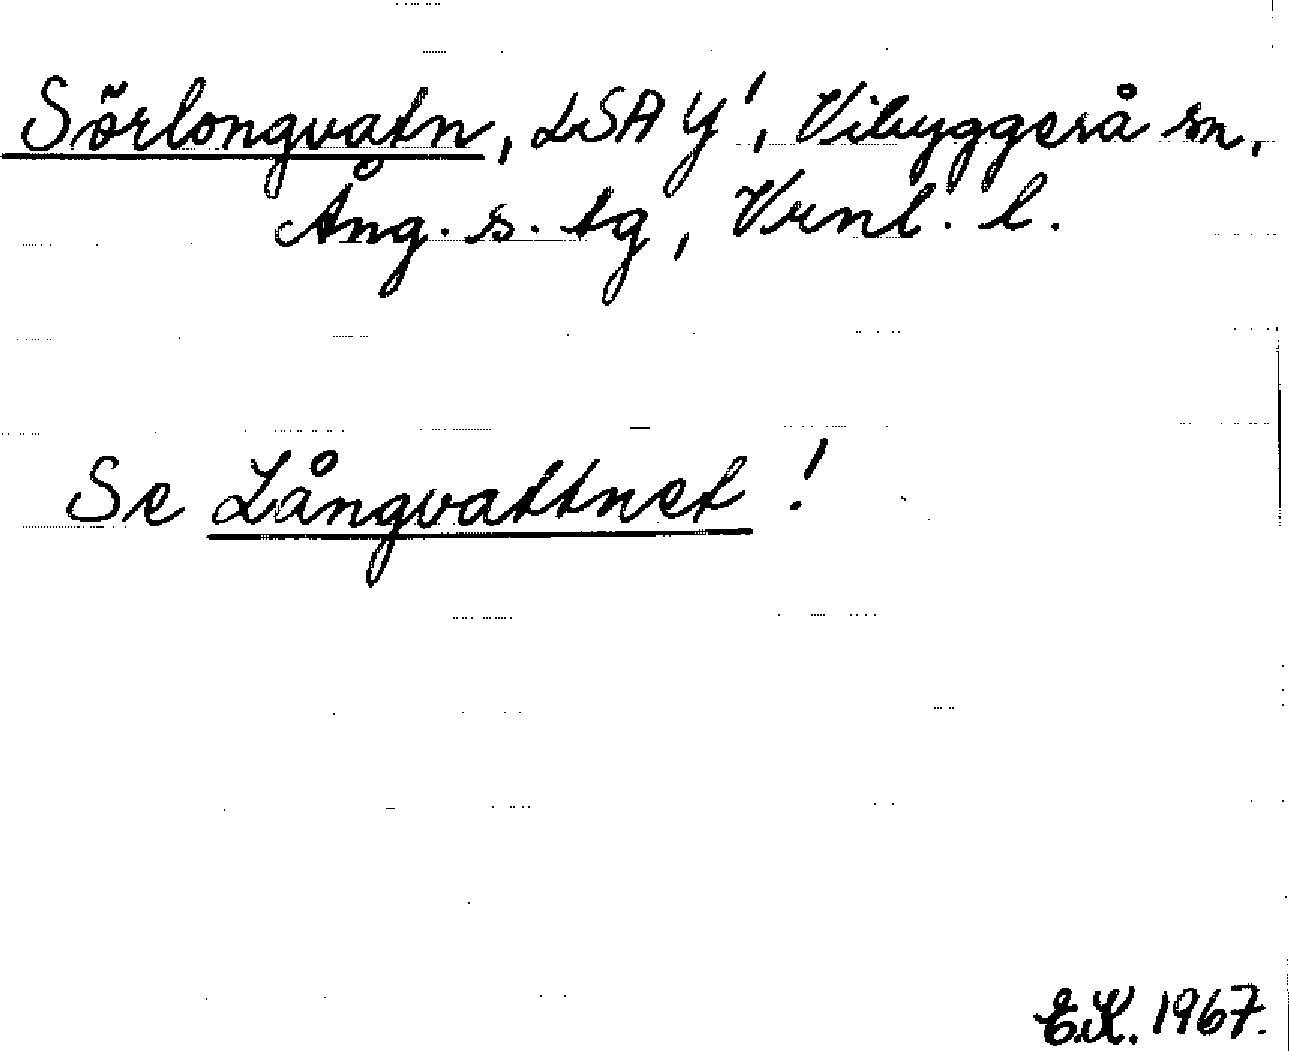 Sörlongvatn, LSA Y', Vibyggerå sn,
Ång. s. tg, Vrnl. l.
Se Långvattnet !
E.K. 1967.